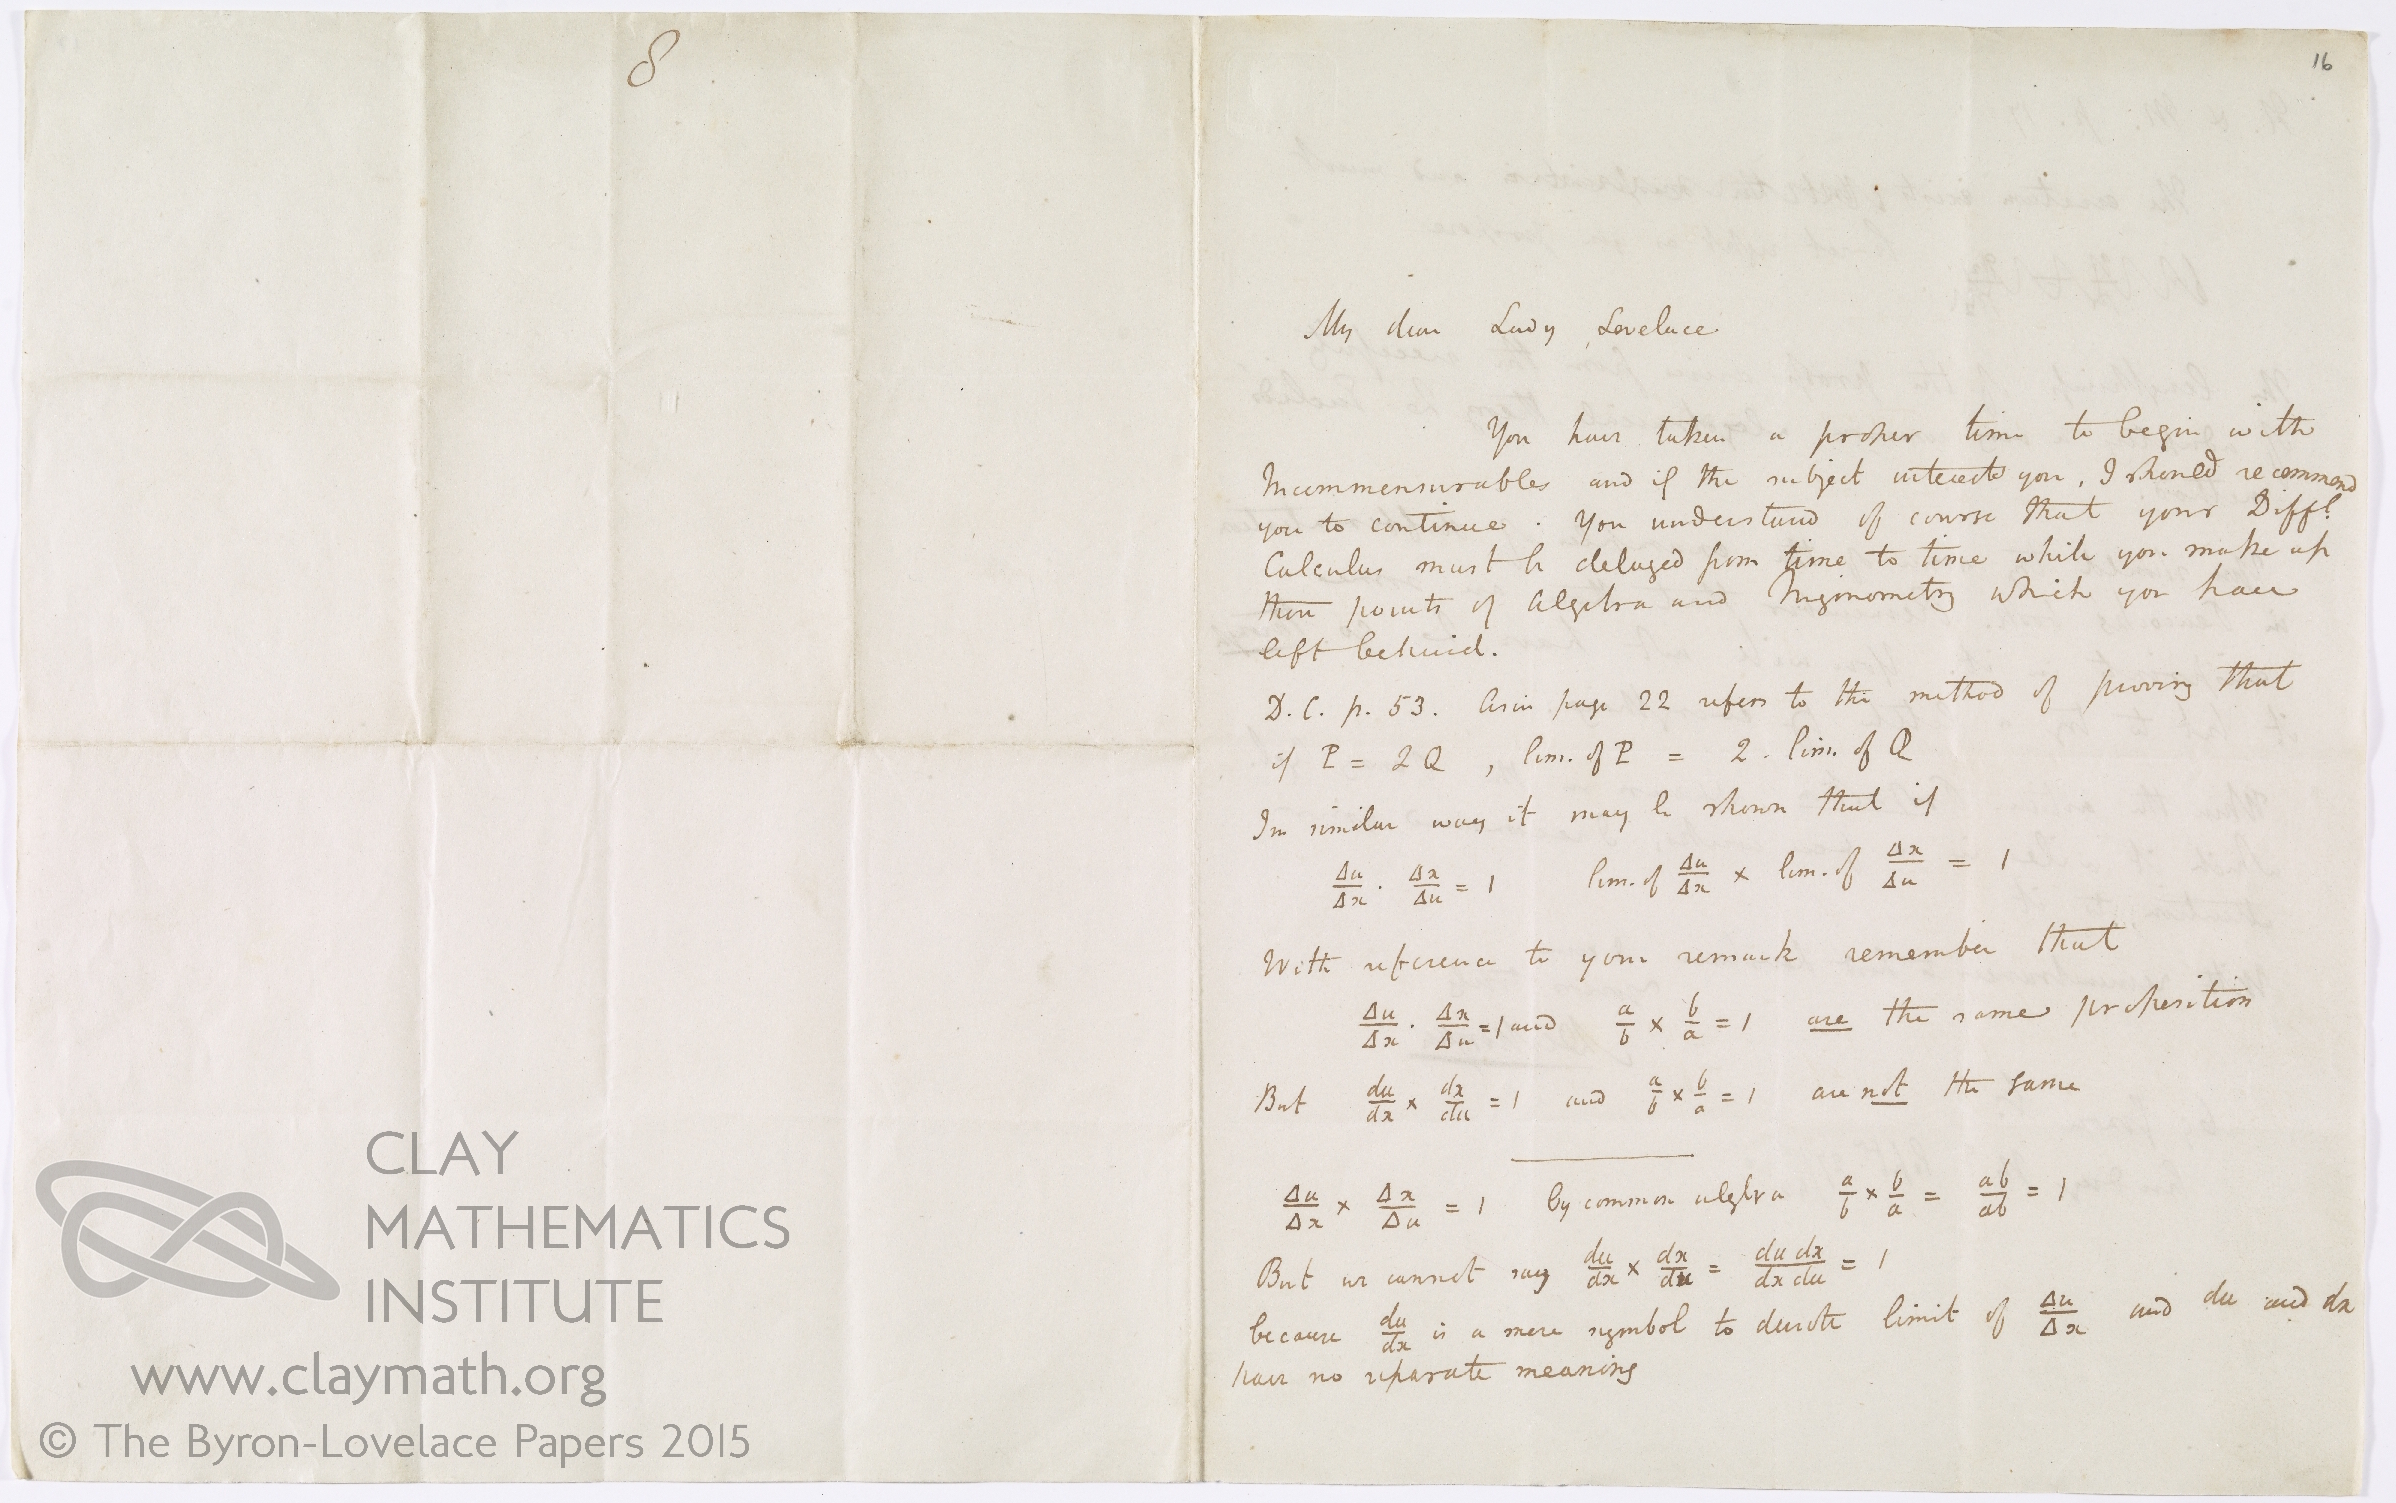 8
16
My dear Lady Lovelace
You have taken a proper time to begin with
Incommensurables and if the subject interests you, I should recommend
you to continue. You understand of course that your Diffl.
Calculus must be delayed from time to time while you make up
those points of Algebra and Trigonometry which you have
left behind.
D.C. p. 53. As in page 22 refers to the method of proving that
if P = 2Q , lim. of P = 2. lim. of Q
In similar way it may be shown that if
Δu/Δx . Δx/Δu = 1 lim. of Δu/Δx × lim. of Δx/Δu = 1
With reference to your remark remember that
Δu/Δx . Δx/Δu = 1 and a/b × b/a = 1 are the same proposition
But du/dx × dx/du = 1 and a/b × b/a = 1 are not the same
Δu/Δx × Δx/Δu = 1 by common algebra a/b × b/a = ab/ab = 1
But we cannot say du/dx × dx/du = du dx/dx du = 1
because du/dx is a mere symbol to denote limit of Δu/Δx and du and dx
have no separate meaning
CLAY
MATHEMATICS
INSTITUTE
www.claymath.org
© The Byron-Lovelace Papers 2015